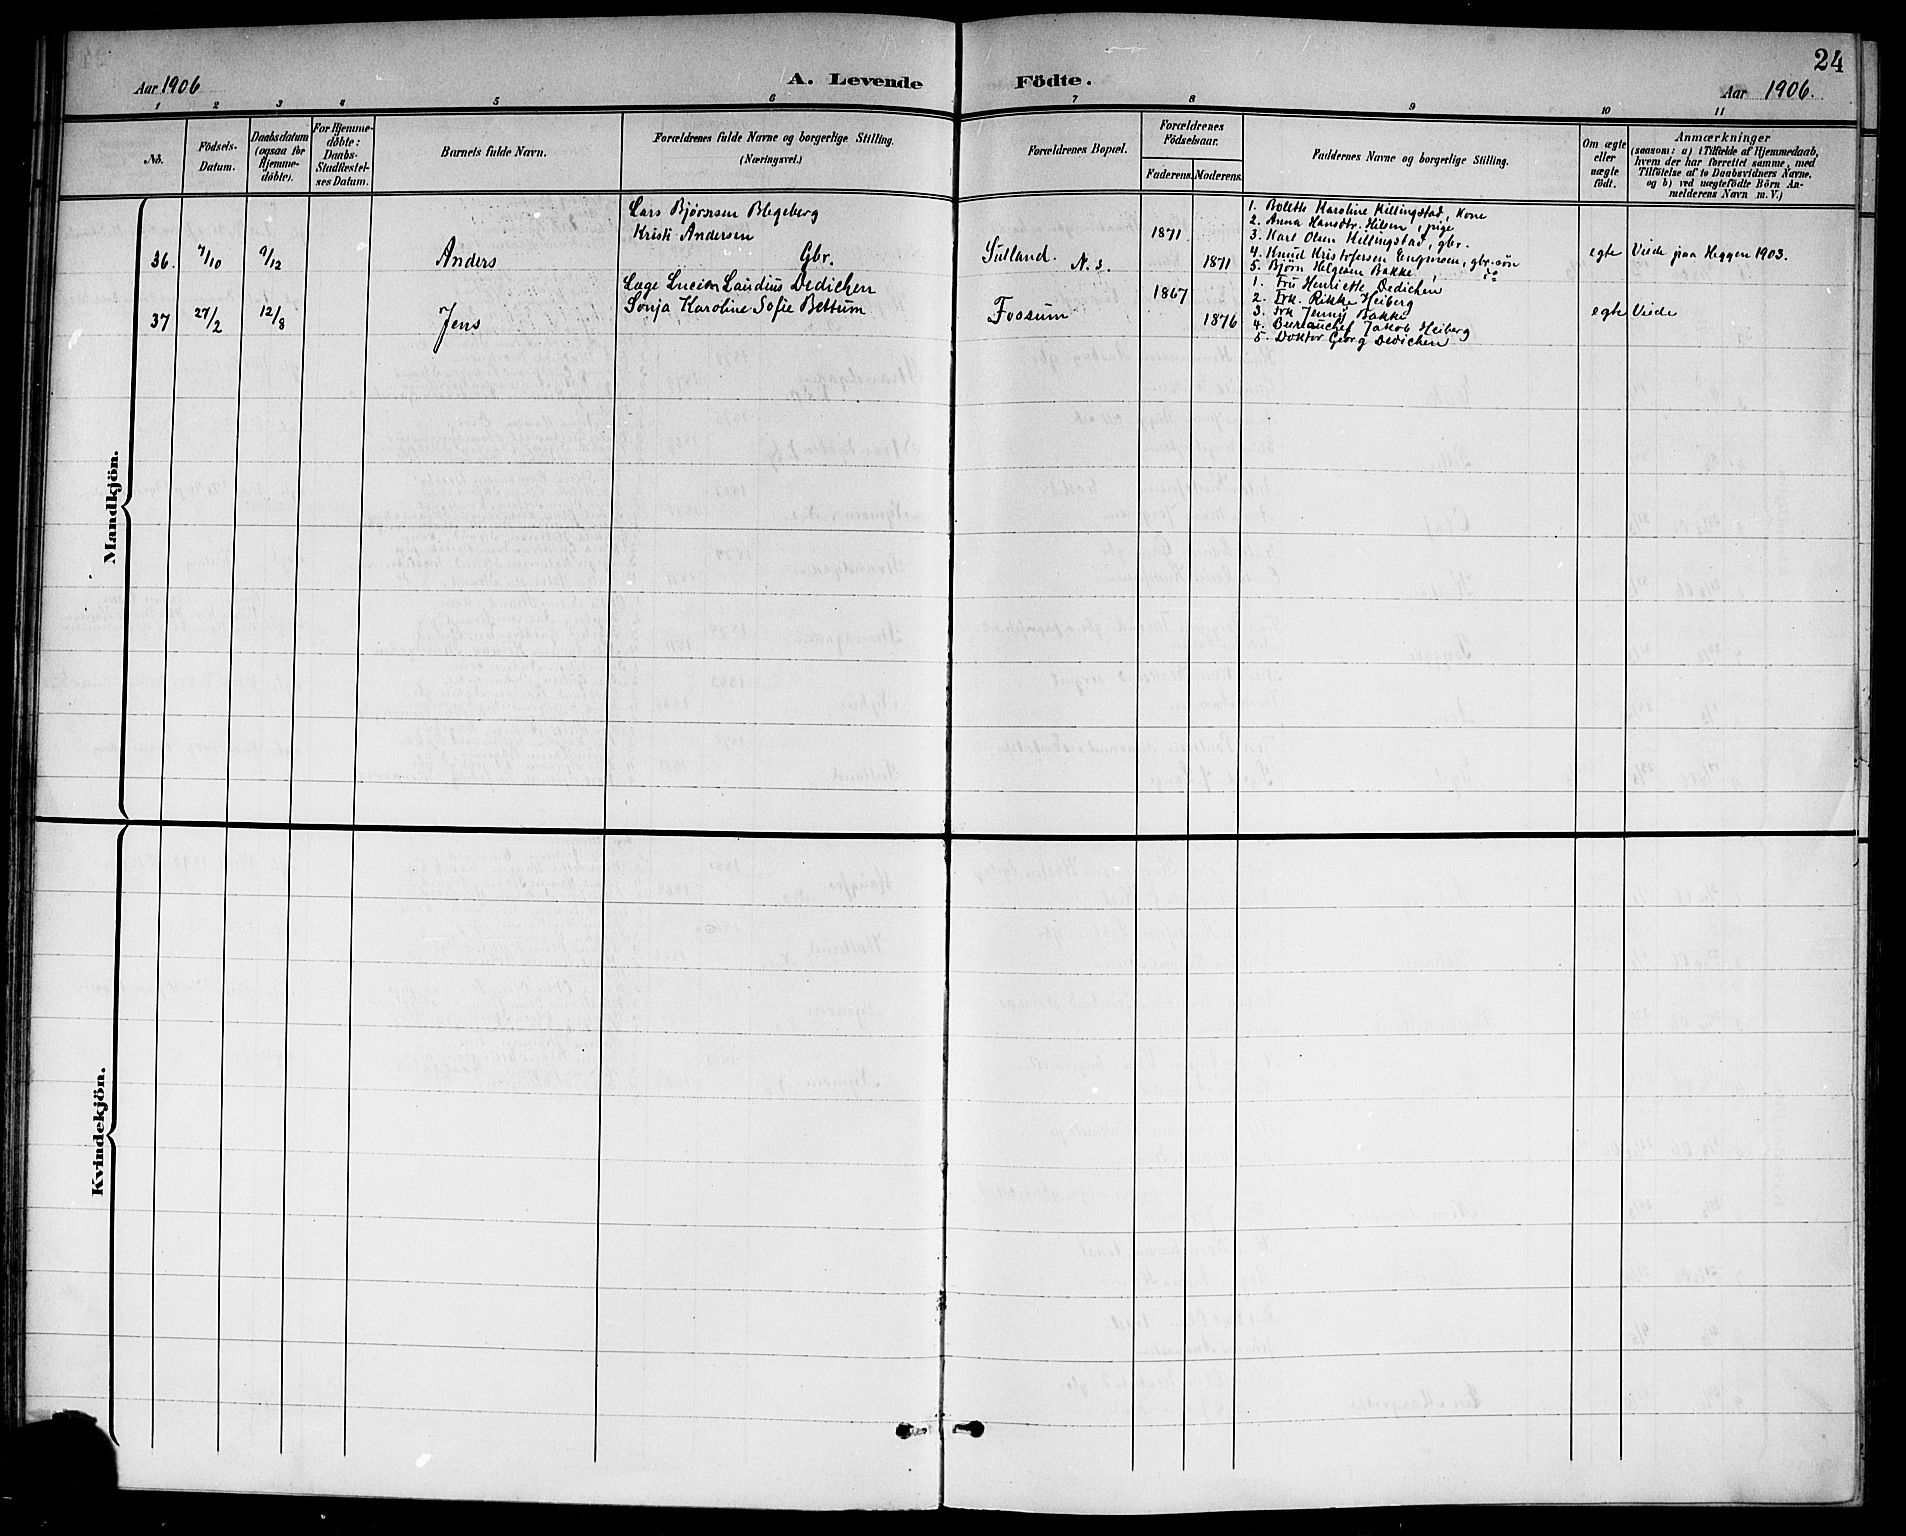 24
Aar 1906
A. Levende Födte.
Aar 1906.
1 2 3 4 5 6 7 8 9 10 11
No.
Födsels-Datum.
Daabsdatum (ogsaa for Hjemme-döbte).
For Hjemme-döbte: Daabs-Stadfæstel-ses Datum.
Barnets fulde Navn.
Forældrenes fulde Navne og borgerlige Stilling.
(Næringsvei.)
Forældrenes Bopæl.
Forældrenes Födselsaar.
Faderens. Moderens.
Faddernes Navne og borgerlige Stilling.
Om ægte eller uægte födt.
Anmærkninger
(saasom: a) i Tilfælde af Hjemmedaab,
hvem der har forrettet samme, med
Tilföielse af to Daabsvidners Navne.
og b) ved uægtefödte Börn An-
melderens Navn m. V.)
Mandkjön.
36. 7/10 9/12
Anders
Lars Bjørnsen Blegeberg
Kristi Andersen
Gbr.
Sutland. N. s.
1871
1871
1. Bolette Karoline Killingstad, Kone
2. Anna Hansdtr. Hilsen, pige
3. Karl Olsen Killingstad, gbr.
4. Knud Kristofersen Engmoen, gbr.søn
5. Bjørn Helgesen Bakke, do
egte
Viede paa Heggen 1903.
37 27/2 12/8
Jens
Læge Lucien Laudius Dedichen
Sonja Karoline Sofie Bettum
Foosum
1867
1876
1. Fru Henriette Dedichen
2. Frk. Rikke Heiberg
3. Frk Jenny Bakke
4. Bureauchef Jakob Heiberg
5. Doktor Georg Dedichen
egte
Viede
Kvindekjön.